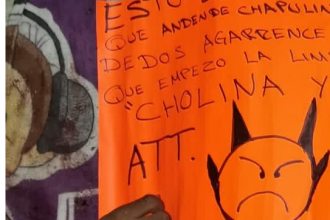 ESTO
QUE ANDEN DE CHAPULIN
DEDOS AGARRENCE
QUE EMPEZO LA LIM
"CHOLINA Y
ATT.